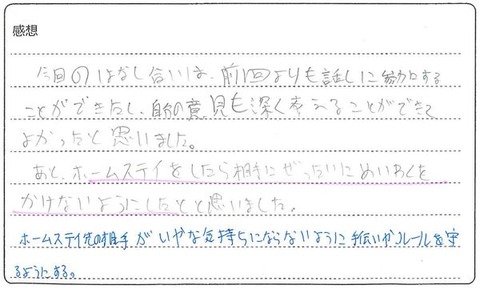 感想
今回のはなし合いは、前回よりも話しに参加する
ことができたし、自分の意見も深く考えることができて
よかったと思いました。
あと、ホームステイをしたら相手にぜったいにめいわくを
かけないようにしたとと思いました。
ホームステイ先の相手がいやな気持ちにならないように手伝いやルールを守
るようにする。